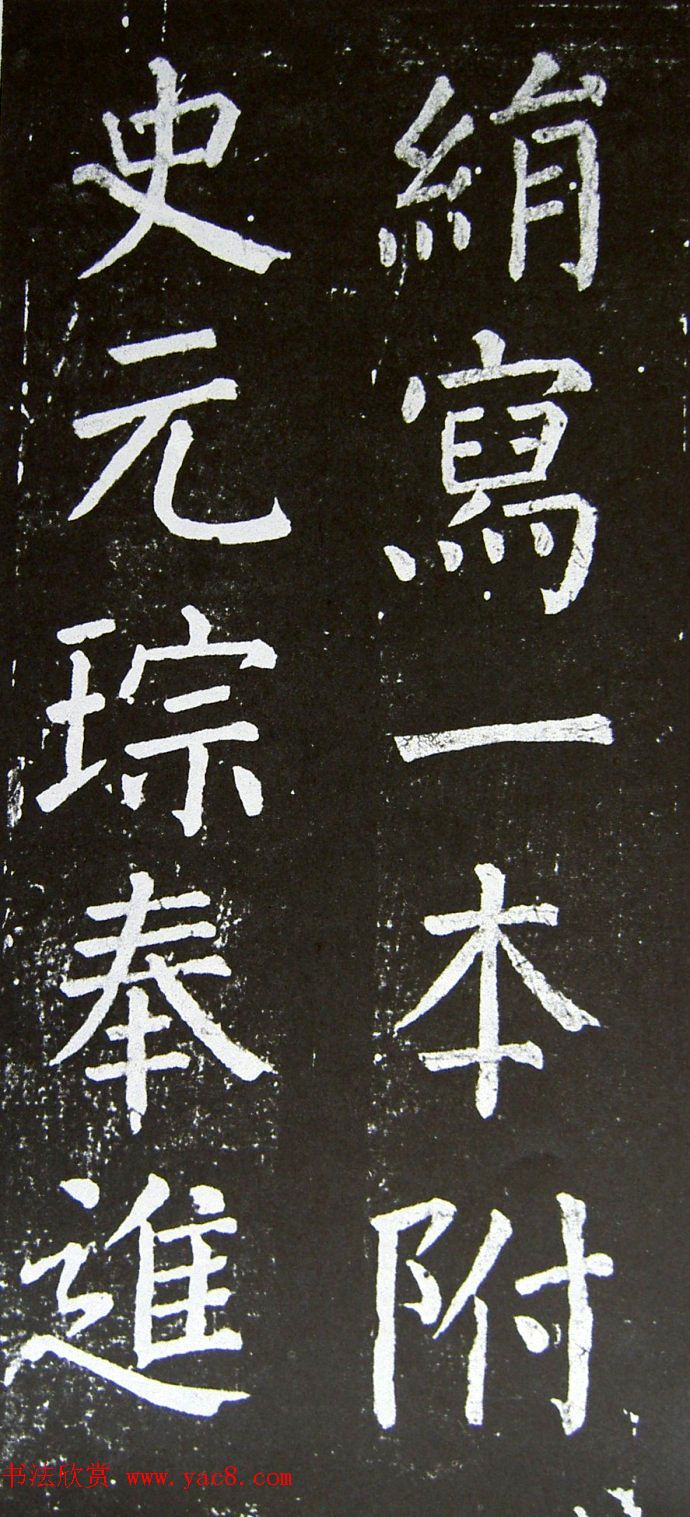 絹寫一本附
史元琮奉進
书法欣赏 www.yac8.com